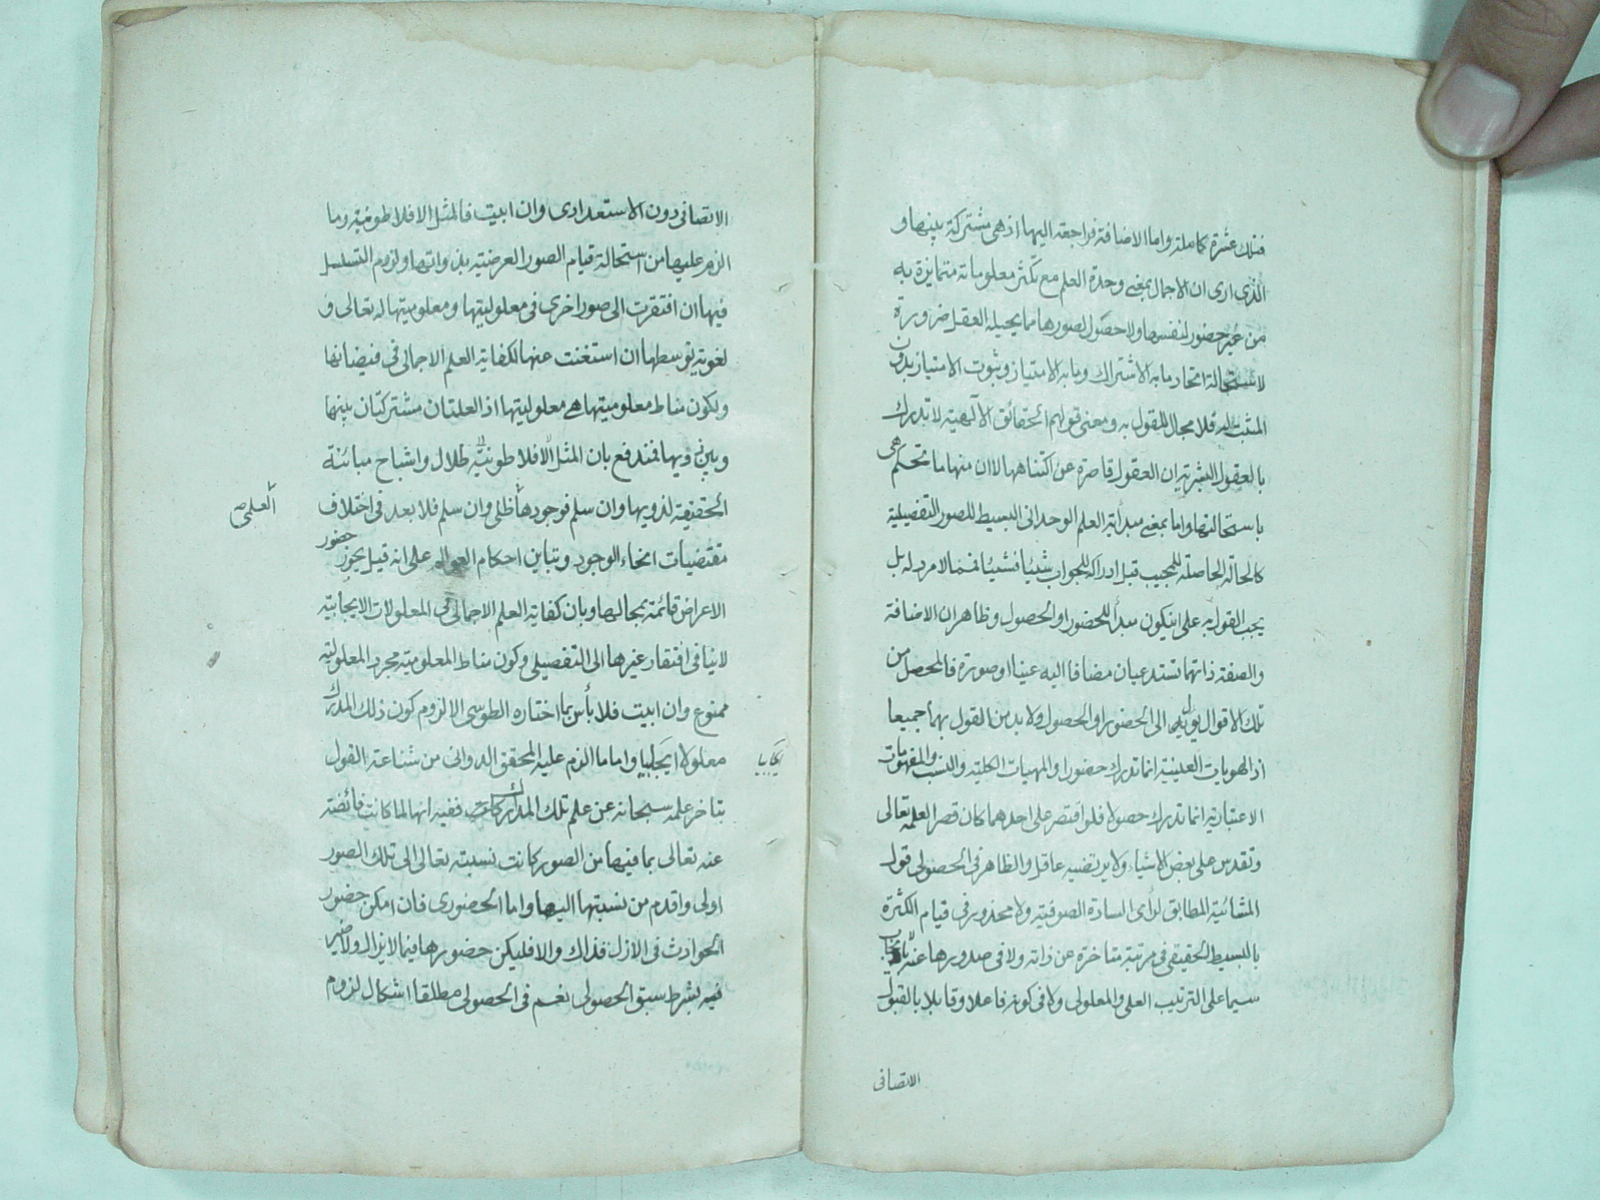 فتلك عشرة كاملة واما الاضافة فراجعة اليها اذ هى مشتركة بينها و
الذى ارى ان الاجمال بمعنى وحدة العلم مع تكثر معلوماته متمايزة به
من غير حضور لنفسها ولا حصول لصورها مما يحيله العقل ضرورة
لاستحالة اتحاد ما به الاشتراك وما به الامتياز وثبوت الامتياز بدون
المثبت له فلا مجال للقول به ومعنى قولهم الحقائق الالهية لا تدرك
بالعقول البشرية ان العقول قاصرة عن اكتناهها لا ان منها ما تحكم هى
باستحالتها واما بمعنى مبدأية العلم الوحدانى البسيط للصور التفصيلية
كالحالة الحاصلة للمجيب قبل ادراكه للجواب شيئا فشيئا فمما لا مرد له بل
يجب القول به على ان يكون مبدأ للحضور او الحصول وظاهر ان الاضافة
والصفة ذاتها تستدعيان مضافا اليه عينا او صورة فالمحصل من
تلك الاقوال يؤل الى الحضور او الحصول ولا بد من القول بهما جميعا
اذ الهويات العينية انما تدرك حضورا والمهيات الكلية والنسب والمفهومات
الاعتبارية انما تدرك حصولا فلو اقتصر على احدهما كان قصر العلمه تعالى
وتقدس على بعض الاشياء ولا يرتضيه عاقل والظاهر فى الحصولى قول
المشائية المطابق لرأى السادة الصوفية ولا محذور فى قيام الكثرة
بالبسيط الحقيقى فى مرتبة متاخرة عن ذاته ولا فى صدورها عنه
سيما على الترتيب العلى والمعلولى ولا فى كونه فاعلا وقابلا بالقبول
الاتصافى
الاتصافى دون الاستعدادى وان ابيت فالمثل الافلاطونية وما
الزم عليها من استحالة قيام الصور العرضية بذواتها ولزوم التسلسل
فيها ان افتقرت الى صور اخرى فى معلوليتها ومعلوميتها له تعالى و
لغوية توسطها ان استغنت عنها لكفاية العلم الاجمالى فى فيضانها
ولكون مناط معلوميتها هى معلوليتها اذ العلتان مشتركتان بينها
وبين ذويها فمندفع بان المثل الافلاطونية ظلال واشباح مبائنة
الحقيقة لذويها وان سلم فوجودها ظلى وان سلم فلا بعد فى اختلاف
العلمى
مقتضيات انحاء الوجود وتباين احكام العوالم على انه قيل يجوز حضور
الاعراض قائمة بمحالها وبان كفاية العلم الاجمالى فى المعلولات الايجابية
لا ينافى افتقار غيرها الى التفصيلى وكون مناط المعلومية مجرد المعلولية
ممنوع وان ابيت فلا بأس بما اختاره الطوسى الا لزوم كون ذلك المدرك
معلولا ايجابيا واما ما الزم عليه المحقق الدوانى من شناعة القول
ايجابيا
بتاخر علمه سبحانه عن علم تلك المدارك ففيه انها لما كانت فائضة
عنه تعالى بما فيها من الصور كانت نسبته تعالى الى تلك الصور
اولى واقدم من نسبتها اليها واما الحضورى فان امكن حضور
الحوادث فى الازل فذاك والا فليكن حضورها فيما لا يزال ولا ضير
فيه بشرط سبق الحصولى نعم فى الحصولى مطلقا اشكال لزوم